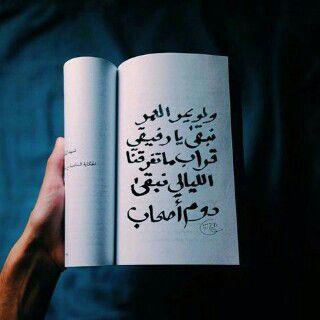 ولو يمر العمر
نبقىٰ يا رفيقي
قراب ما تفرقنا
الليالي نبقىٰ
دوم أصحاب